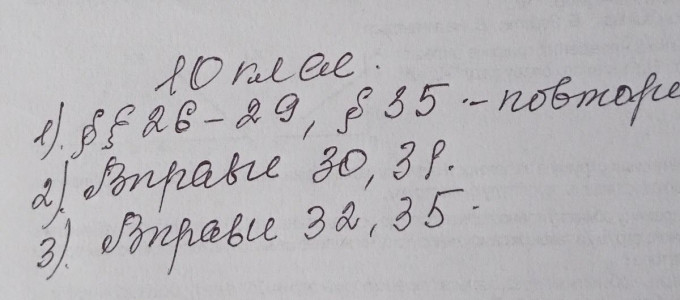 10 клас.
1). §§ 26-29, § 35 - повторе
2). Вправы 30, 31.
3). Вправы 32, 35.